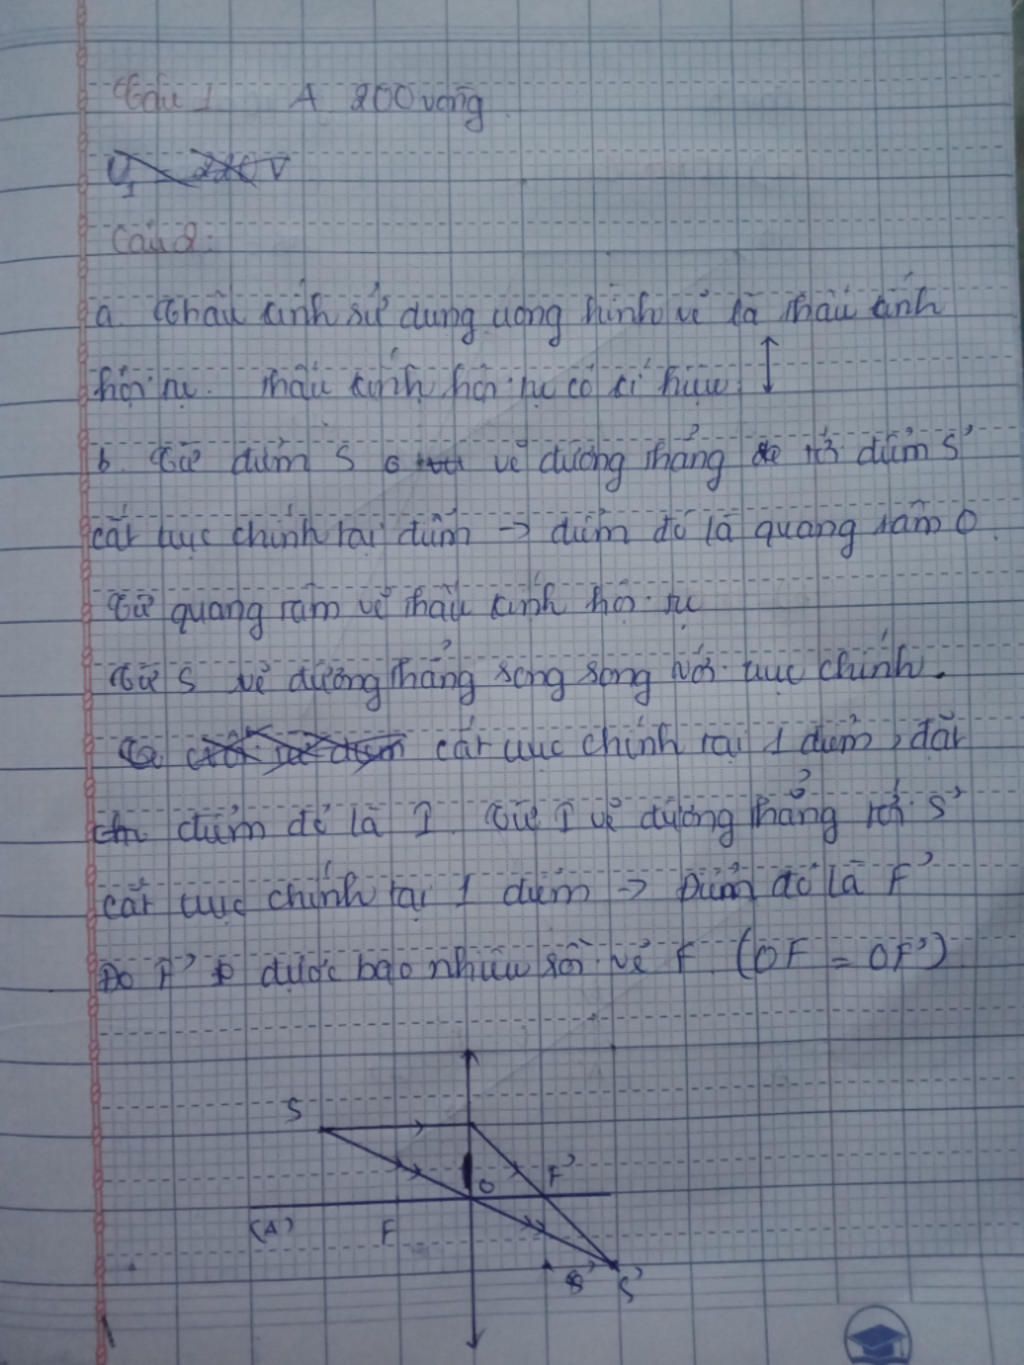 Câu 1 A 200 vòng
U1 220V
Câu 2:
a. Thấu kính sử dụng trong hình vẽ là thấu kính
hội tụ. Thấu kính hội tụ có kí hiệu
b. Từ điểm S vẽ đường thẳng tới điểm S'
cắt trục chính tại điểm → điểm đó là quang tâm O.
Từ quang tâm vẽ thấu kính hội tụ
Từ S vẽ đường thẳng song song với trục chính.
cắt trục chính tại 1 điểm, đặt
điểm đó là I. Từ I vẽ đường thẳng tới S'
cắt trục chính tại 1 điểm → Điểm đó là F'
Đo F' được bao nhiêu rồi vẽ F (OF = OF')
S
O F'
(Δ) F
S'